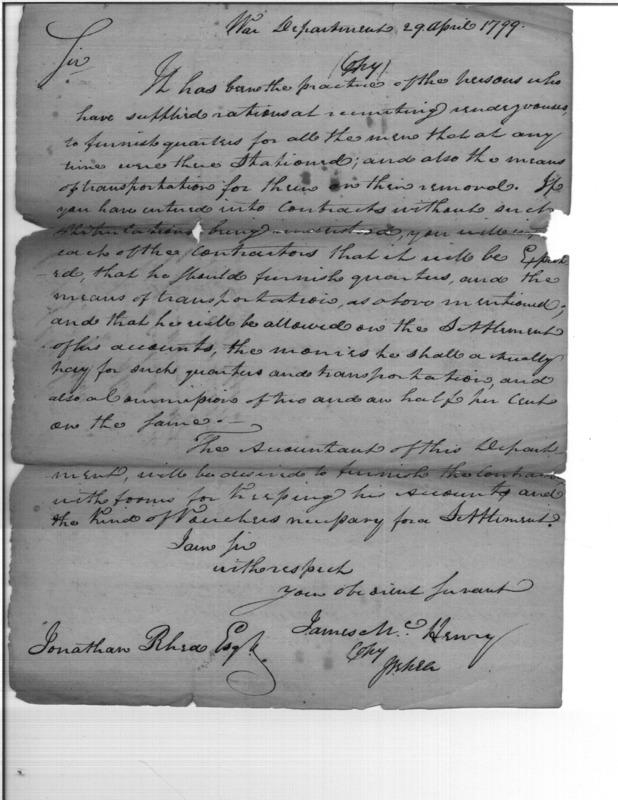 War Department 29 April 1799.
(Copy)
Sir
It has been the practice of the Persons who
have supplied rations at recruiting rendezvouses,
to furnish quarters for all the men that at any
time were there Stationed; and also the means
of transportation for them on their removal. If
you have entered into Contracts without such
Stipulations being, you will
each of the Contractors that it will be Expect
ed, that he should furnish quarters, and the
means of transportation, as above mentioned;
and that he will be allowed on the Settlement
of his accounts, the monies he shall actually
pay for such quarters and transportation, and
also a Commission of two and an half per Cent
on the same.—
The Accountant of this Depart-
ment, will be desired to furnish the Contrac
with forms for keeping his Accounts and
the kind of Vouchers necessary for a Settlement.
I am Sir
with respect
your obedient servant
James Mc. Henry
Jonathan Rhea Esqr.
Copy
JRhea